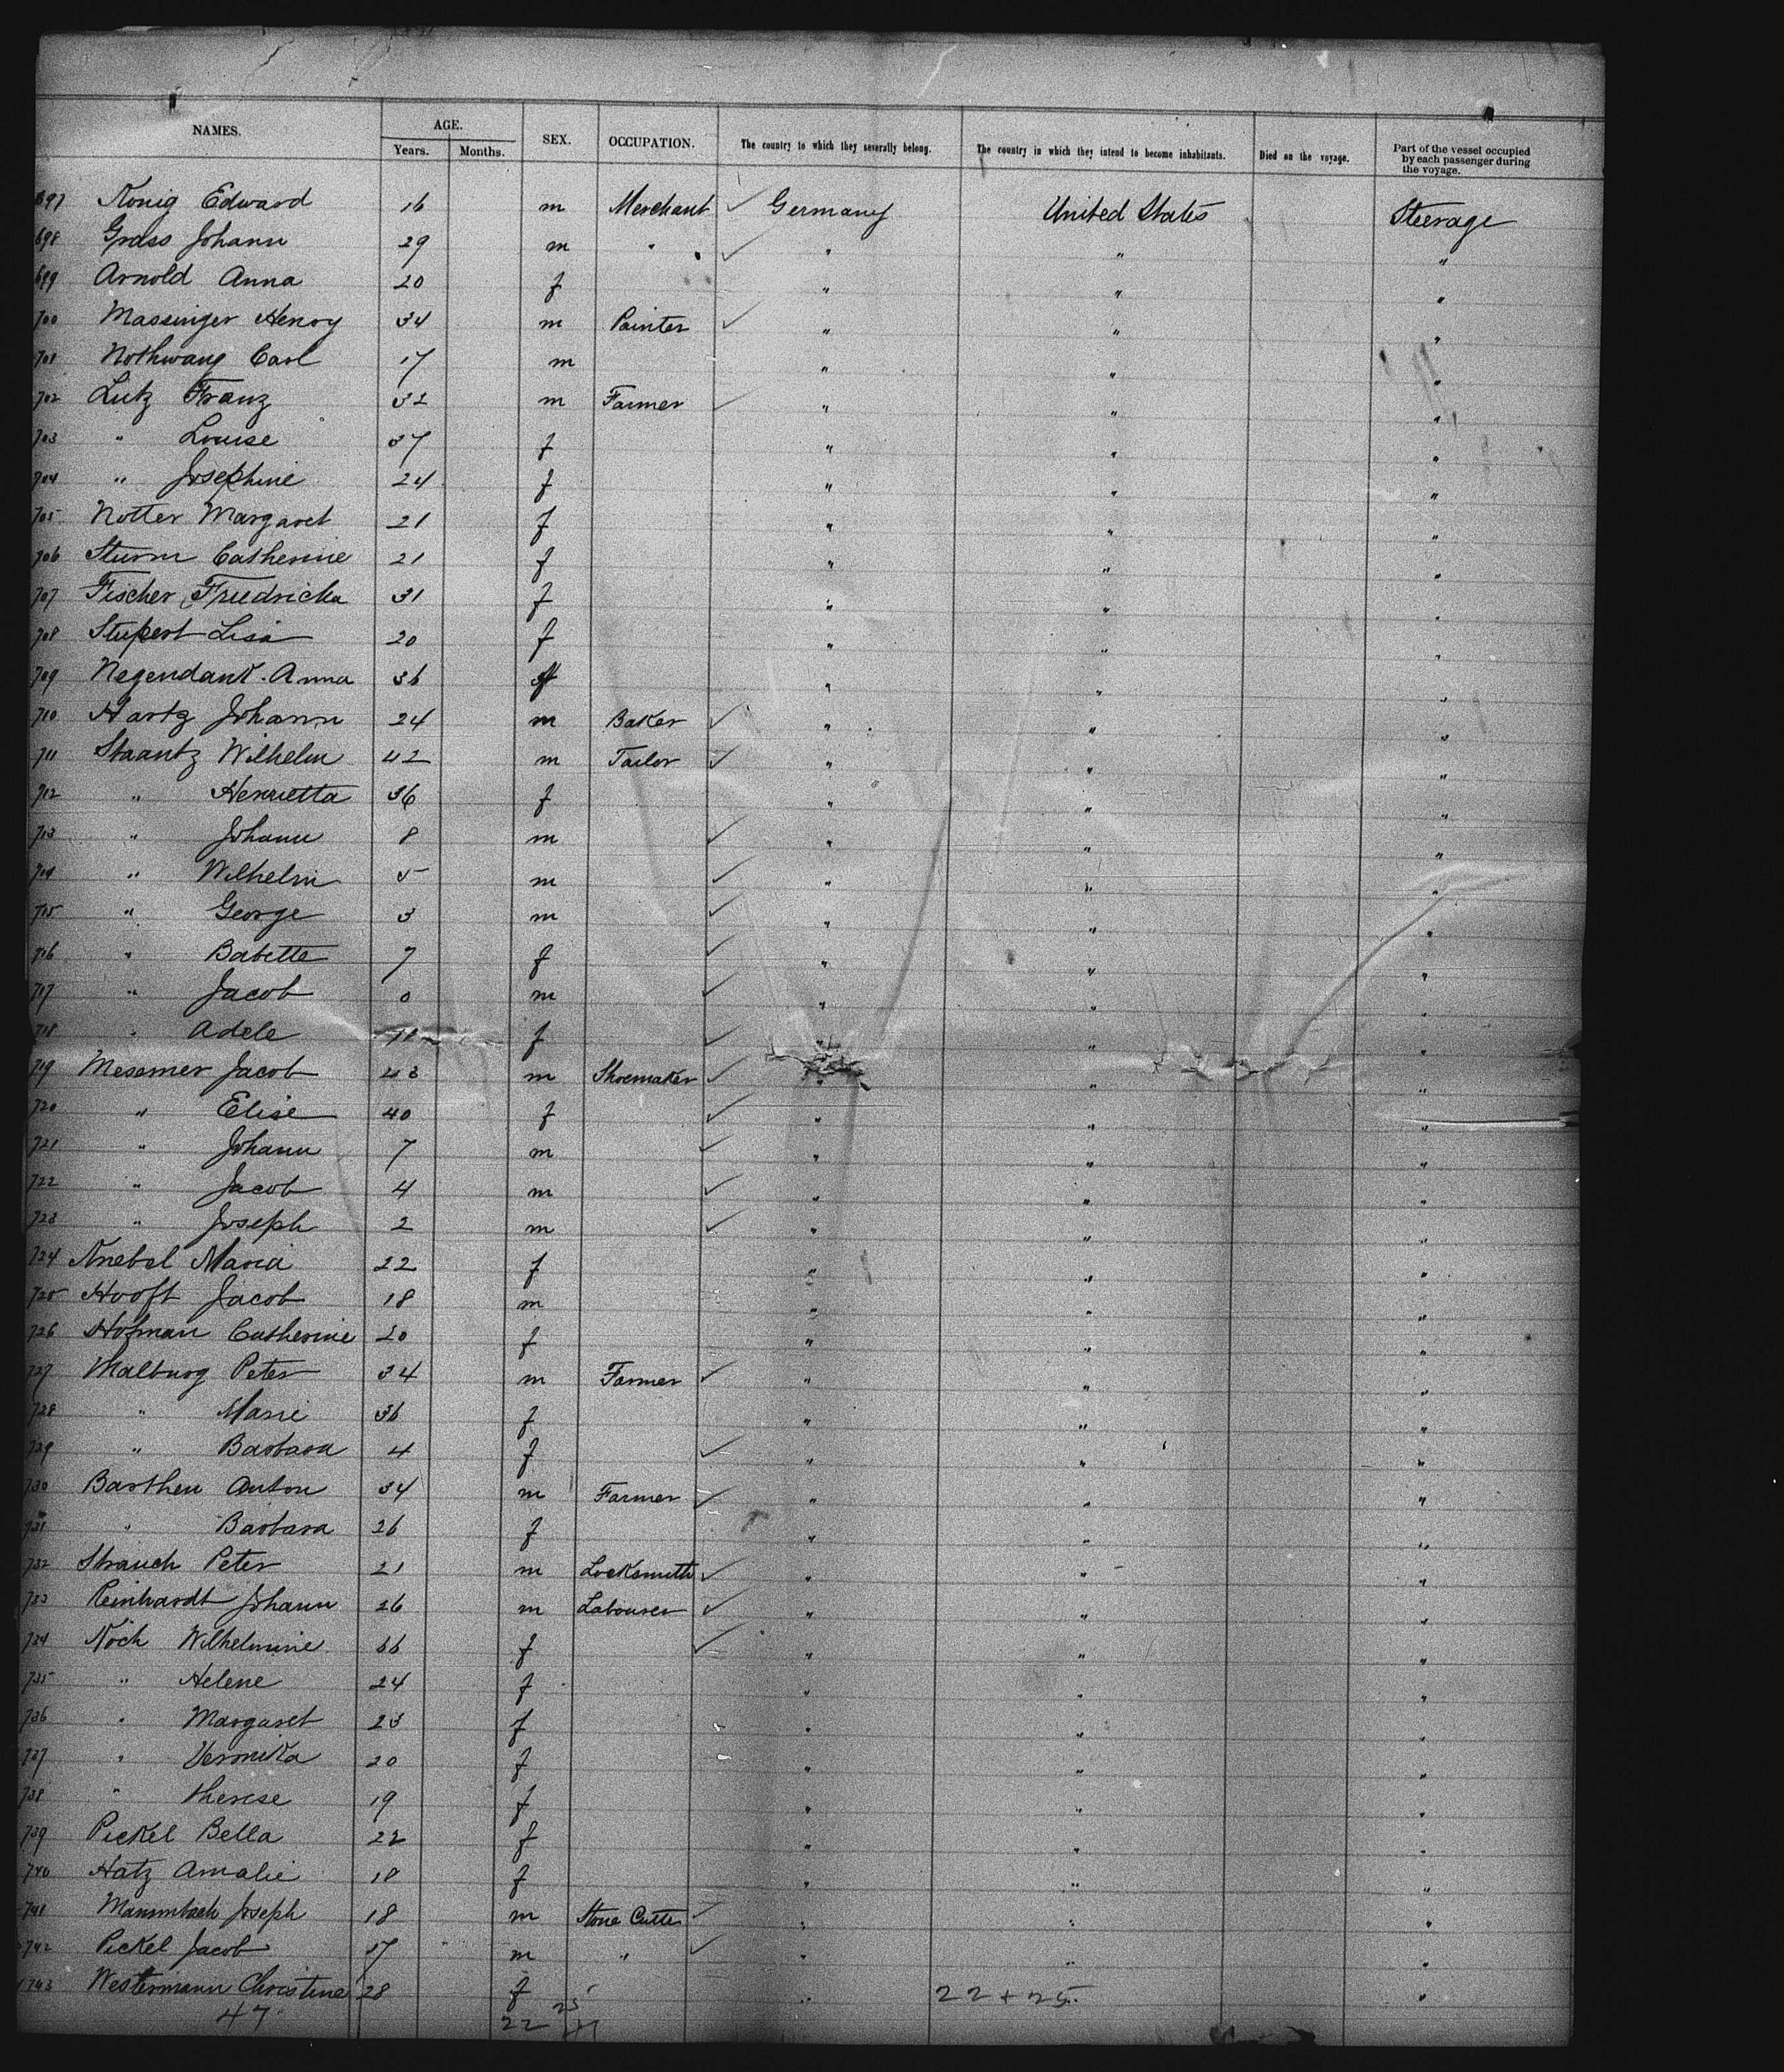 NAMES. AGE. SEX. OCCUPATION. The country to which they severally belong. The country in which they intend to become inhabitants. Died on the voyage. Part of the vessel occupied by each passenger during the voyage.
Years. Months.
697 König Edward 16 m Merchant ✓ Germany United States Steerage
698 Grass Johann 29 m " ✓ " " "
699 Arnold Anna 20 f " " "
700 Massinger Henry 34 m Painter ✓ " " "
701 Nothwang Carl 17 m " " "
702 Lutz Franz 32 m Farmer ✓ " " "
703 " Louise 37 f " " "
704 " Josephine 24 f " " "
705 Notter Margaret 21 f " " "
706 Sturm Catherine 21 f " " "
707 Fischer Friedricka 31 f " " "
708 Stupert Lisa 20 f " " "
709 Negendank Anna 36 f " " "
710 Hartz Johann 24 m Baker ✓ " " "
711 Staantz Wilhelm 42 m Tailor ✓ " " "
712 " Henrietta 36 f " " "
713 " Johann 8 m ✓ " " "
714 " Wilhelm 5 m ✓ " " "
715 " George 3 m ✓ " " "
716 " Babette 7 f ✓ " " "
717 " Jacob 0 m ✓ " " "
718 " Adele f ✓ " " "
719 Mesemer Jacob 43 m Shoemaker ✓ " " "
720 " Elise 40 f ✓ " " "
721 " Johann 7 m ✓ " " "
722 " Jacob 4 m ✓ " " "
723 " Joseph 2 m ✓ " " "
724 Knebel Maria 22 f " " "
725 Hooft Jacob 18 m " " "
726 Hofman Catherine 20 f " " "
727 Malburg Peter 34 m Farmer ✓ " " "
728 " Marie 36 f " " "
729 " Barbara 4 f ✓ " " "
730 Barthen Anton 34 m Farmer ✓ " " "
731 " Barbara 26 f " " "
732 Strauch Peter 21 m Locksmith ✓ " " "
733 Reinhardt Johann 26 m Labourer ✓ " " "
734 Koch Wilhelmine 66 f ✓ " " "
735 " Helene 24 f " " "
736 " Margaret 23 f " " "
737 " Veronika 20 f " " "
738 " Therese 19 f " " "
739 Pickel Bella 22 f " " "
740 Hatz Amalie 18 f " " "
741 Mannbach Joseph 18 m Stone Cutter ✓ " " "
742 Pickel Jacob 17 m " ✓ " " "
743 Westermann Christine 28 f " 22 + 25 "
47 22 25